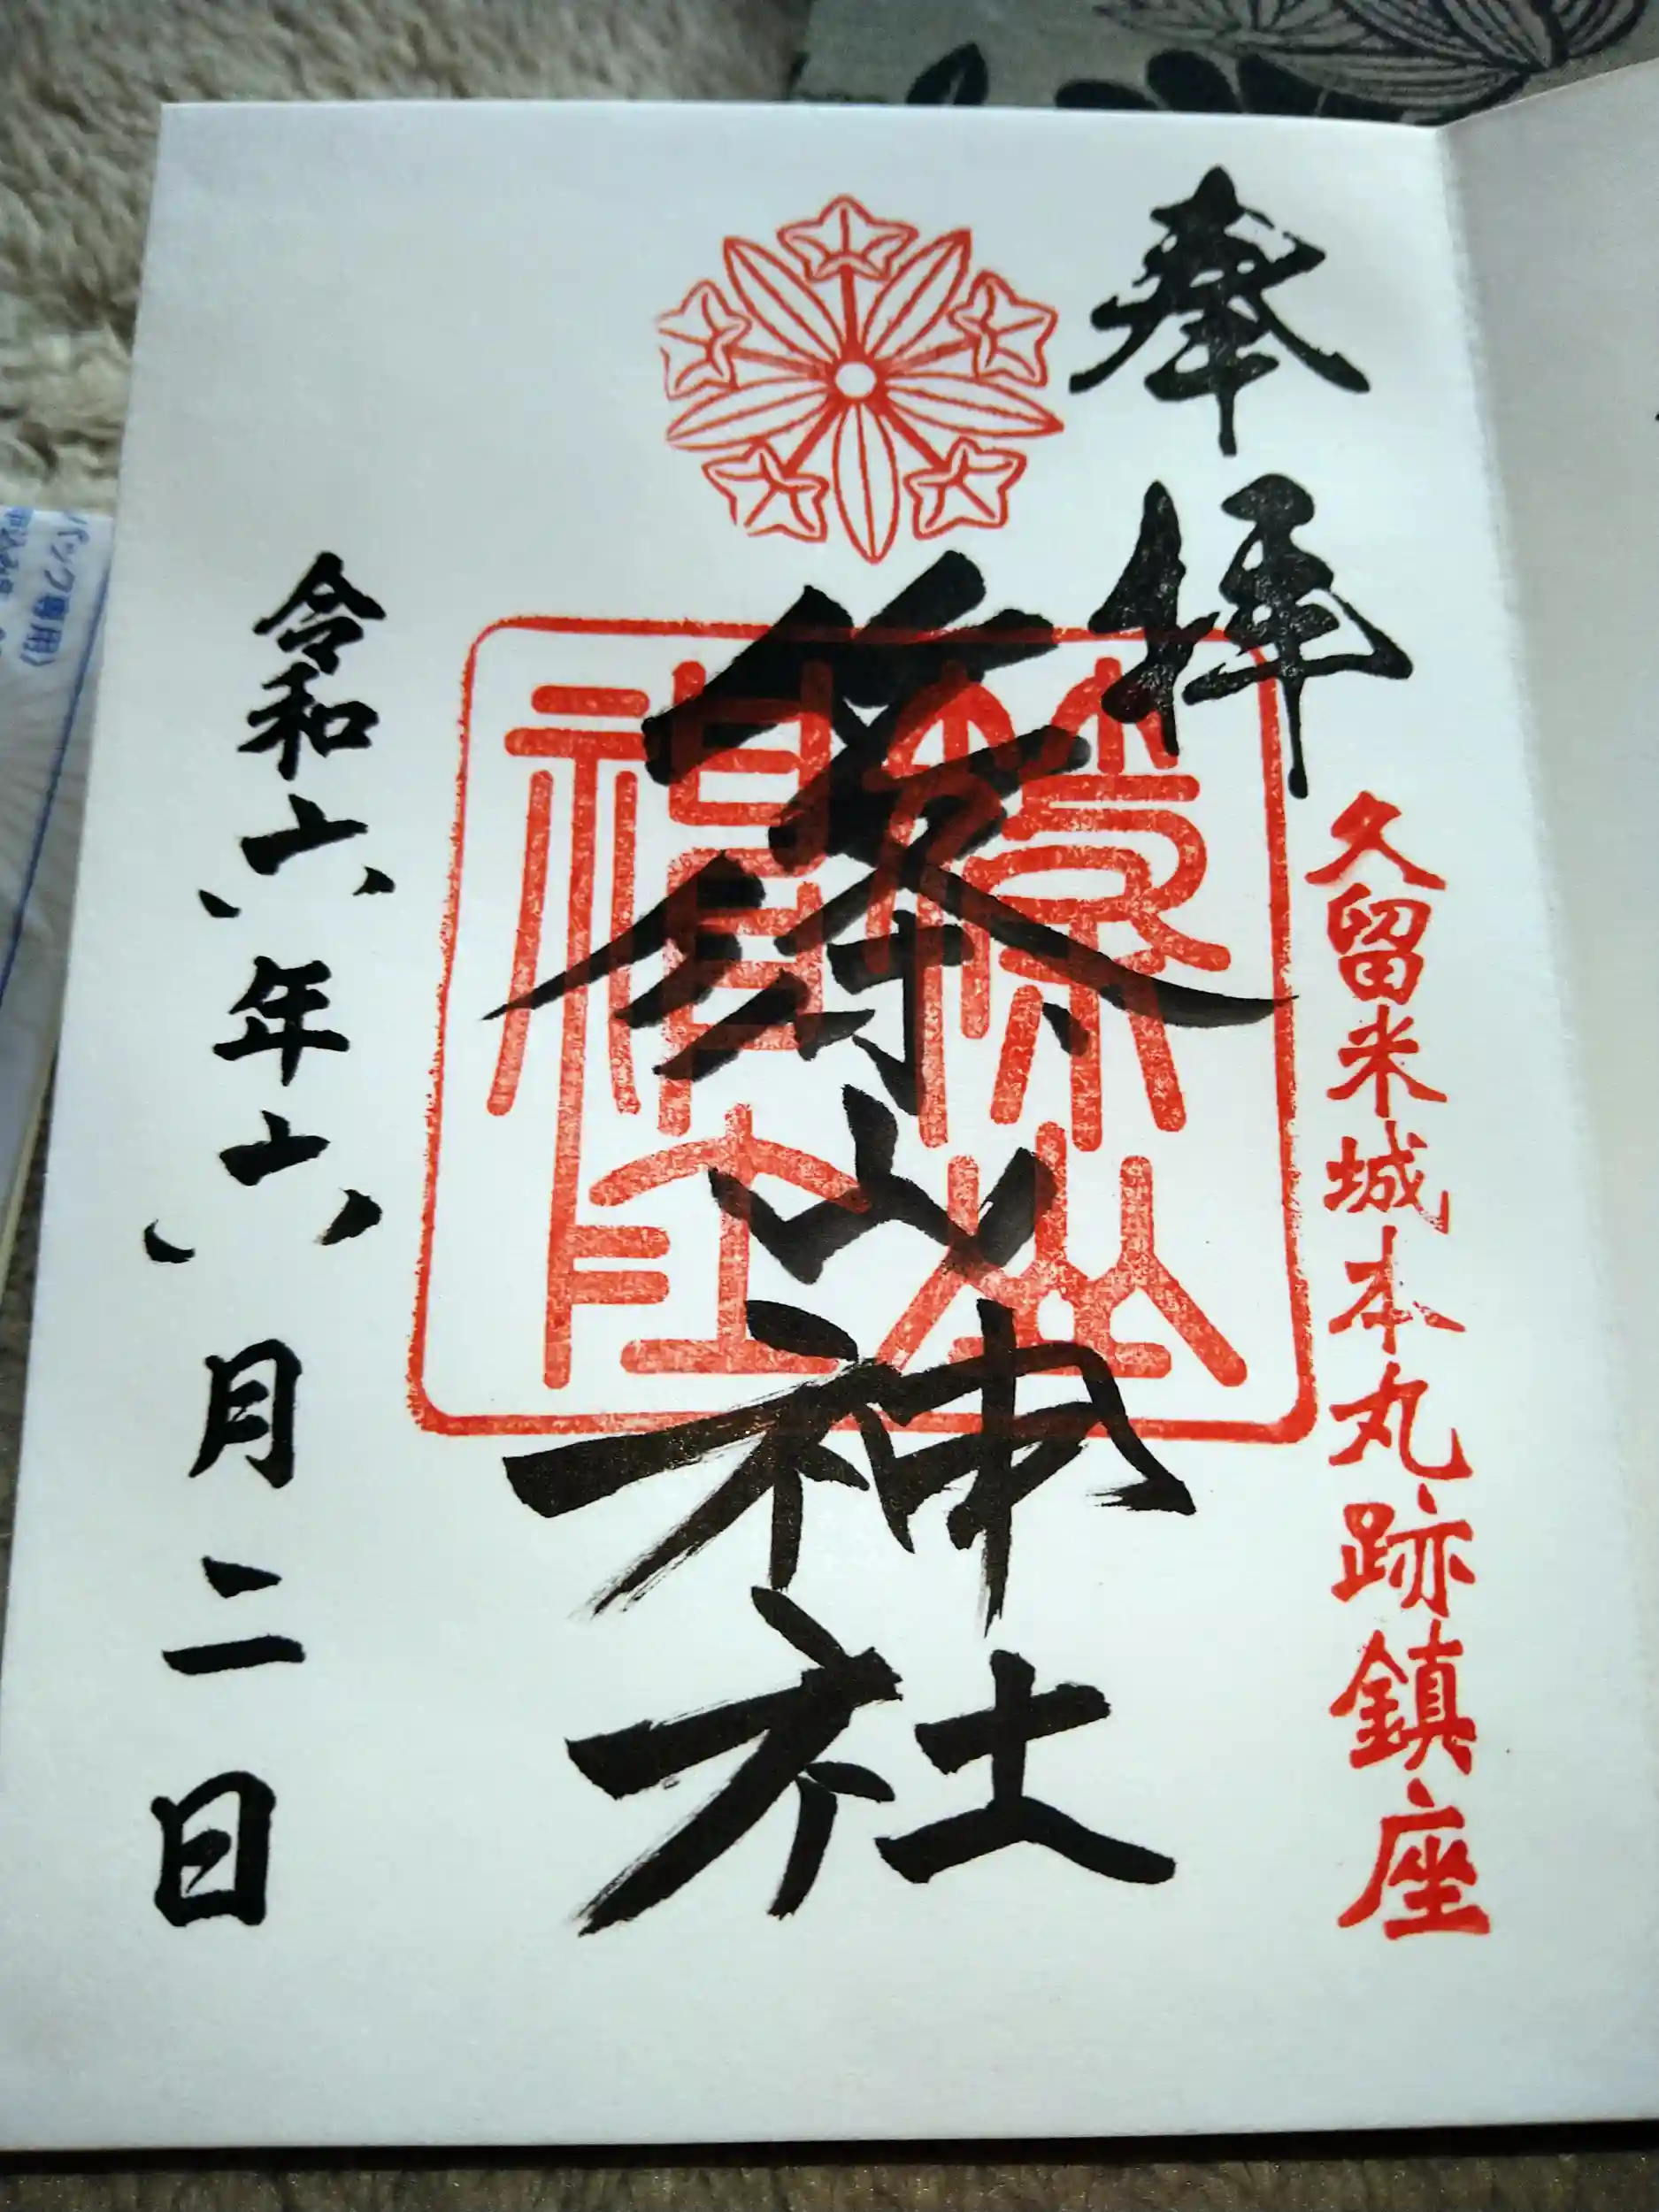 奉拝
久留米城本丸跡鎮座
篠山神社
篠山
神社
令和六年六月二日
パック専用)